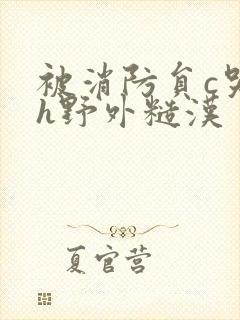 被消防负c哭
h野外糙漢
夏官营